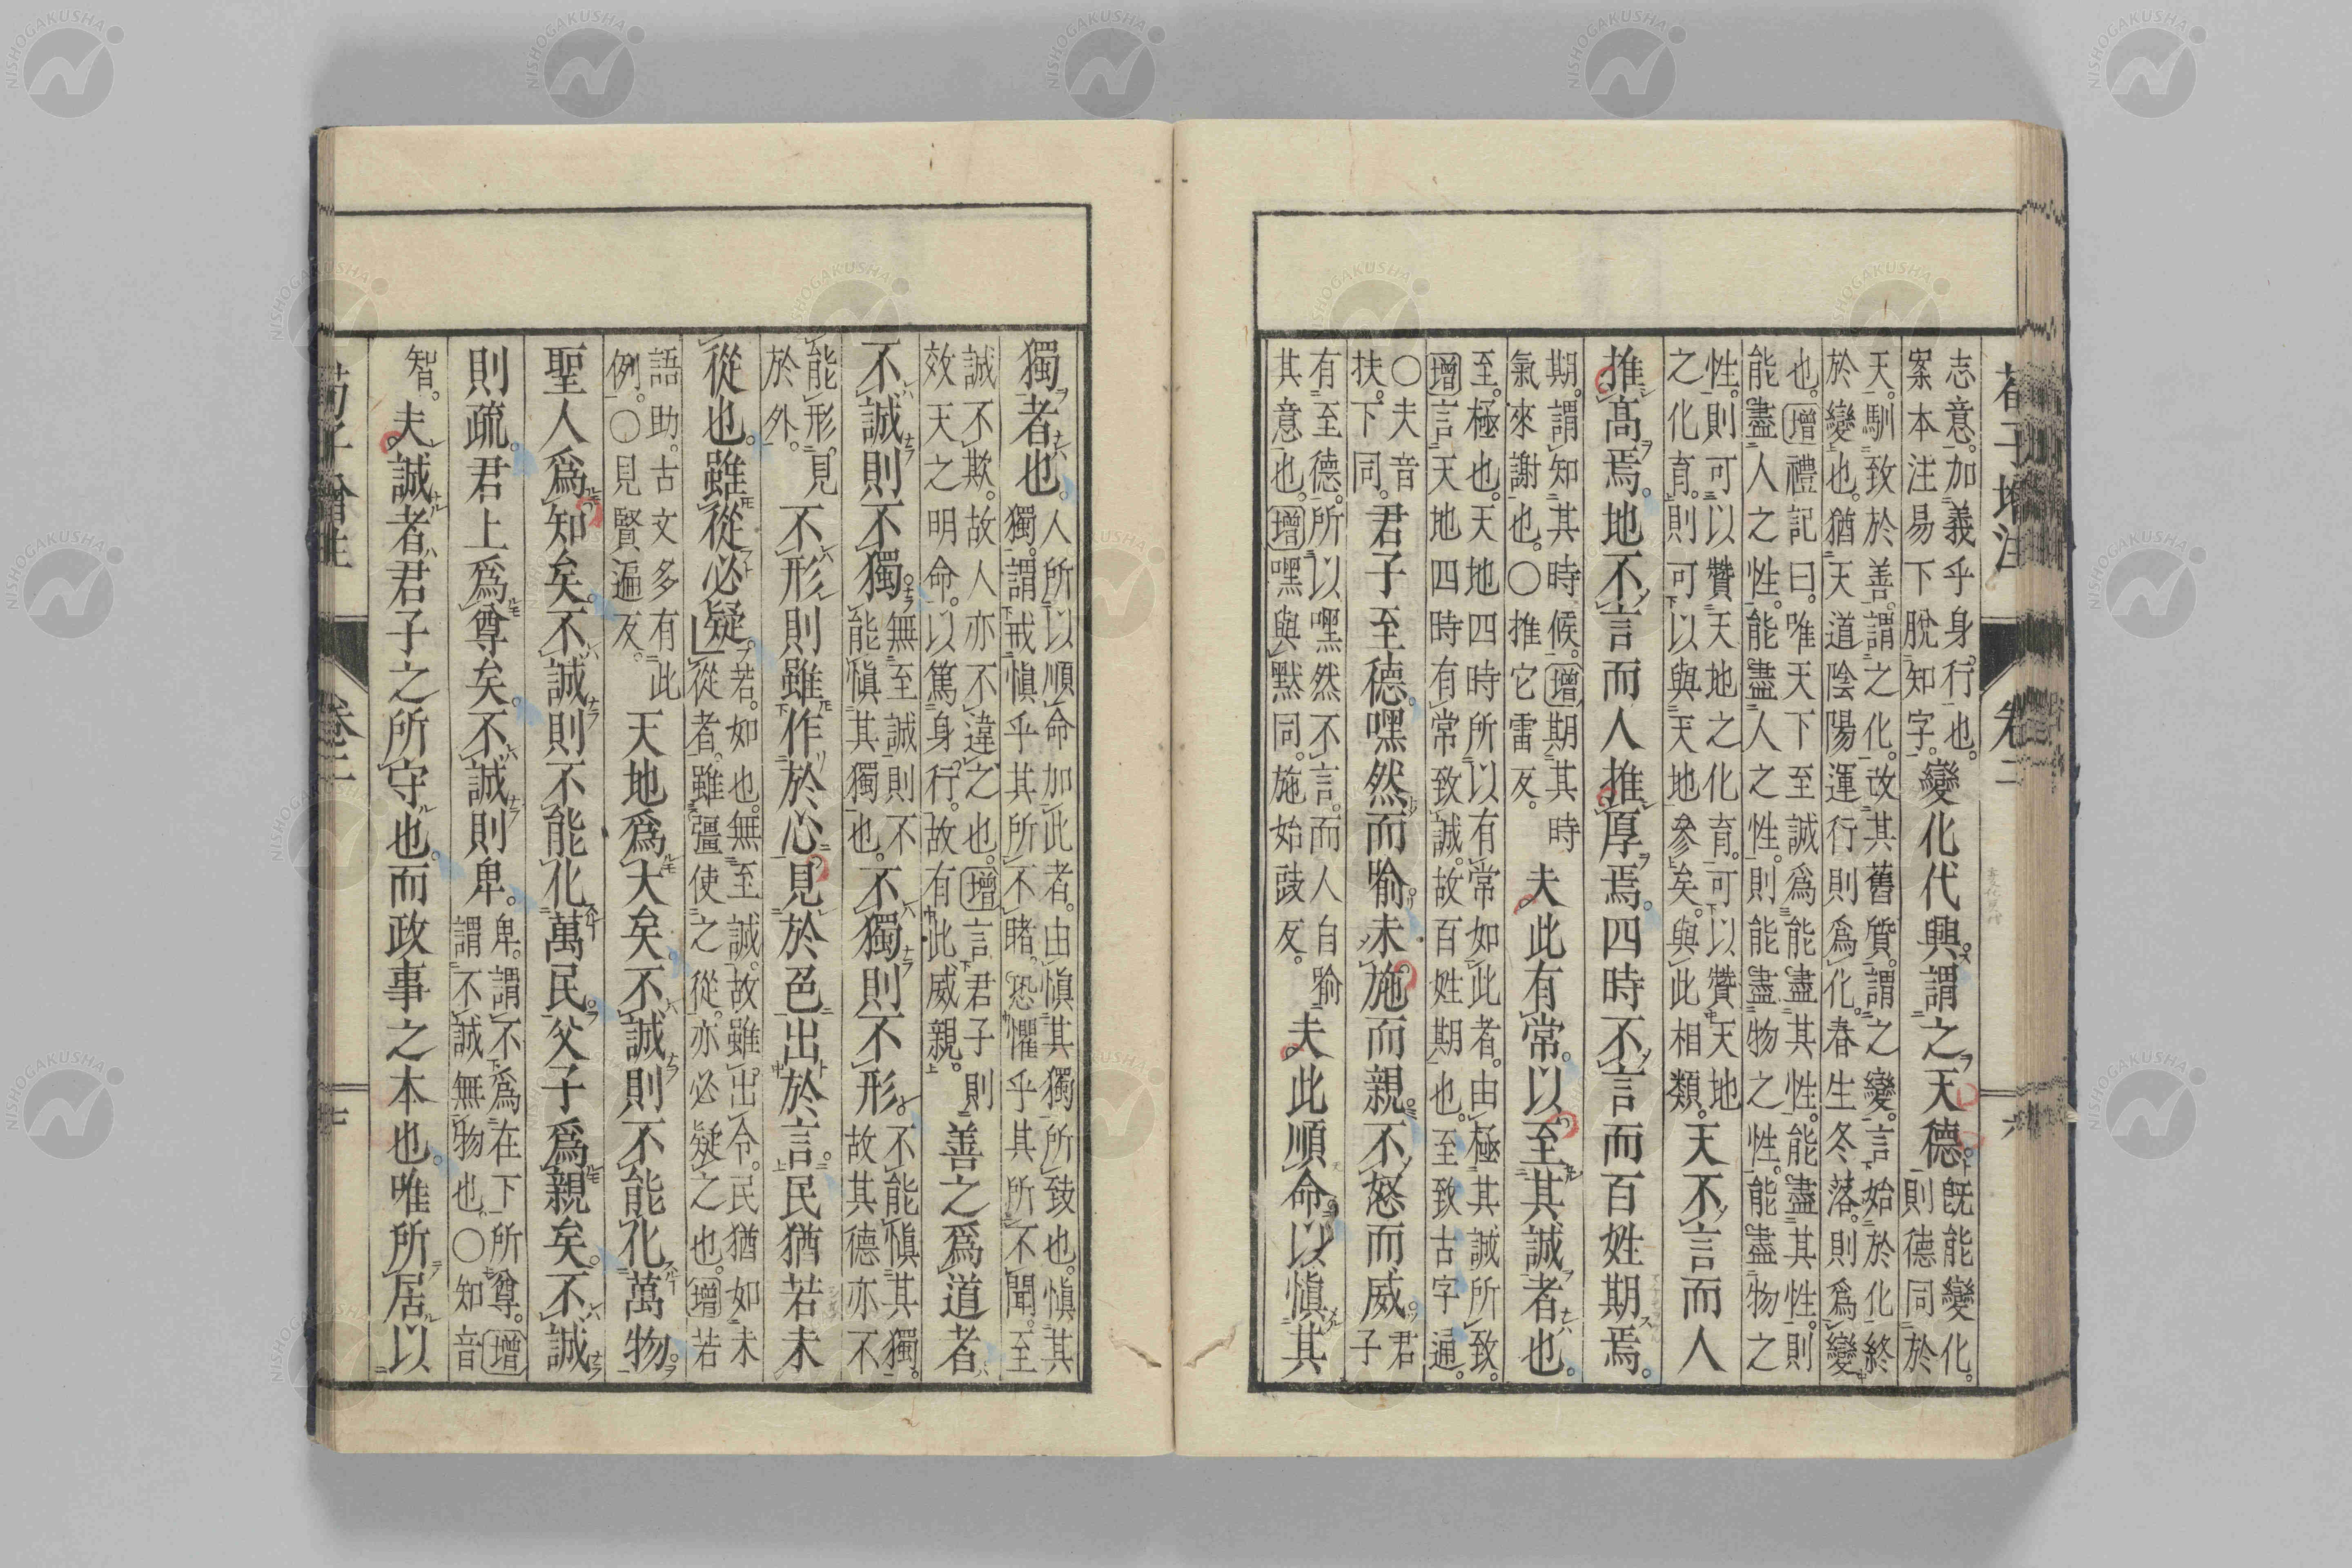 荀子增注 卷二
志意。加義乎身。行也。
案本注易下脫知字。變化代興。謂之天德。既能變化。
則德同於
天。馴致於善。謂之化。故其舊質。謂之變。言始於化終
於變也。猶天道陰陽運行則爲化。春生冬落。則爲變
也。增禮記曰。唯天下至誠爲能盡其性。能盡其性。則
能盡人之性。能盡人之性。則能盡物之性。能盡物之
性。則可以贊天地之化育。可以贊天地
之化育。則可以與天地參矣。與此相類。天不言而人
推高焉。地不言而人推厚焉。四時不言而百姓期焉。
期。謂知其時候。增期其時
氣來謝也。○推它雷反。夫此有常。以至其誠者也。
至。極也。天地四時所以有常如此者。由極其誠所致。
增言天地四時有常致誠。故百姓期也。至致古字通。
○夫音
扶。下同。君子至德。嘿然而喻。未施而親。不怒而威。君
子
有至德。所以嘿然不言。而人自喻
其意也。增嘿與默同。施始豉反。夫此順命。以慎其
獨者也。人所以順命加此者。由慎其獨所致也。慎其
獨。謂戒慎乎其所不睹。恐懼乎其所不聞。至
誠不欺。故人亦不違之也。增言君子
效天之明命。以篤身行。故有此威親。則善之爲道者
不誠則不獨。無至誠則不
能慎其獨也。不獨則不形。不能慎其獨。
故其德亦不
能形見
於外。不形則雖作於心。見於色。出於言。民猶若未
從也。雖從必疑。若。如也。無至誠。故雖出令。民猶如未
從者。雖彊使之從。亦必疑之也。增若
語助。古文多有此
例。○見賢遍反。天地爲大矣。不誠則不能化萬物。
聖人爲知矣。不誠則不能化萬民。父子爲親矣。不誠
則疏。君上爲尊矣。不誠則卑。卑。謂不爲在下所尊。增
謂不誠無物也。○知音
智。夫誠者君子之所守也。而政事之本也。唯所居以
荀子增注 卷二